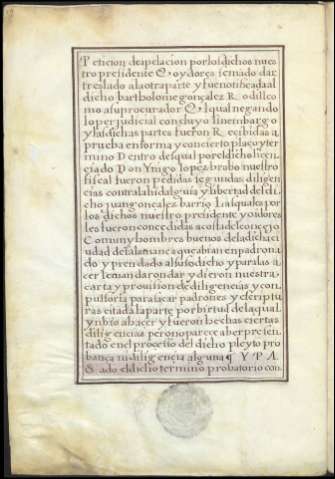 Peticion de apelacion por los dichos nues
tro presidente E, oydores se mado dar
treslado a la otra parte y fue notificada al
dicho bartholome gonçalez R. o dillo mo
a su procurador El qual negando
lo perjudicial concluyo sin embargo
y las dichas partes fueron R. ecibidas a
prueba en forma y concierto plaço y ter
mino Dentro del qual por el dicho licen
ciado Don Ynigo lopez brabo nuestro
fiscal fueron pedidas segundas diligen
cias contra la hidalguia y libertad del di
cho juan gonçalez barrio Las quales por
los dichos nuestro presidente y oidores
les fueron concedidas a costa del concejo
Comun y hombres buenos de la dicha ci
udad de salamanca que abian enpadrona
do y prendado al susodicho y para las a
cer le mandaron dar y dieron nuestra
carta y prouision de diligencias y con
pulsoria para sacar padrones y escriptu
ras citada la parte por birtud de la qual
y nbio a bacer y fueron hechas ciertas
diligencias pero no parece aber presen
tado en el processo del dicho pleyto pro
bança ni diligencia alguna ¶ Y P A
S ado el dicho termino probatorio con